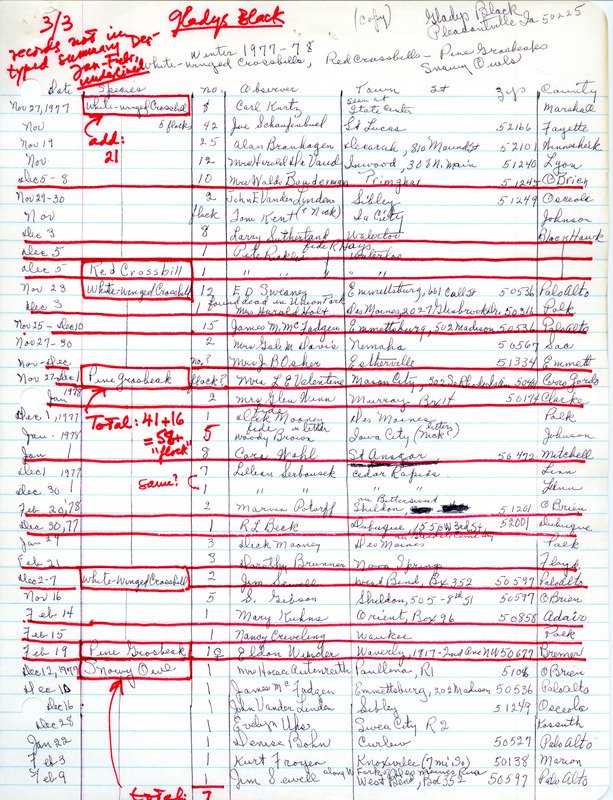 3/3
Gladys Black
(Copy)
Gladys Black
Pleasantville, Ia 50225
records not in
typed summary Dec-
Jan-Feb,
underlined
Winter 1977-78
White-winged Crossbills, Red Crossbills - Pine Grosbeaks
Snowy Owls
Date Species no. Observer Town St Zip County
Nov 27, 1977 White-winged Crossbill 8 Carl Kurtz seen at State Center Marshall
Nov 5 flocks 42 Joe Schaufenbuel St Lucas 52166 Fayette
add:
21
Nov 19 25 Alan Branhagen Decorah, 810 Maund St 52101 Winneshiek
Nov. 12 Mrs Harold De Vaud Inwood, 308 N. Main 51240 Lyon
Dec 5-8 10 Mrs Waldo Primghar 51245 O'Brien
Nov 29-30 2 John E Vander Linden Sibley 51249 Osceola
Nov flock Tom Kent (& Nick) Ia City Johnson
Dec 3 8 Larry Sutherland Waterloo Black Hawk
Dec 5 1 Pete fide R Hays, Waterloo
Dec 5 Red Crossbill 1 " " "
Nov 23 White-winged Crossbills 12 E D Sweaney Emmettsburg, 661 Call St 50536 Palo Alto
Dec 3 1 found dead in Union Park Mrs Harold Holt Des Moines, 2027 Glenbrook Dr. 50311 Polk
Nov 25-Dec 10 15 James M. McFadgen Emmettsburg, 502 Madison 50536 Palo Alto
Nov 27-30 2 Mrs Gale M Davis Nemaha 50567 Sac
Nov-Dec no.? Mrs J B Osher Estherville 51334 Emmett
Nov 27-Dec 1 Pine Grosbeak flock? Mrs L E Valentine Mason City, 50401 Cerro Gordo
Jan 1978 2 Mrs Glen Nunn Murray Bx 14 50174 Clarke
Total: 41+16
= 58+
"flock"
Dec 1, 1977 1 fide Dick Mooney Des Moines Polk
Jan. 1978 5 fide in letter Woody Brown Iowa City (Nick? letter) Johnson
Jan 1 8 Cora Wohl St Ansgar 50472 Mitchell
Dec 1 1977 7 Lillian Serbousek Cedar Rapids Linn
same?
Dec 30 1 " " " Linn
Feb 20, '78 2 Marvin Potarff Sheldon, on Bittersweet 51201 O'Brien
Dec 30, 77 1 R L Beck Dubuque, 1550 W 3rd St, 52001 Dubuque
Jan 29 3 Dick Mooney Des Moines Polk
Feb 21 8 Dorothy Brunner Nora Springs Floyd
Dec 2-7 White-winged Crossbill 2 Jim Sewell West Bend, Bx 352 50597 Palo Alto
Nov 16 5 S. Gibson Sheldon, 505-8th St 50597 O'Brien
Feb 14 1 Mary Kuhns Orient, Box 96 50858 Adair
Feb 15 1 Nancy Creveling Waukee Polk
Feb 19 Pine Grosbeak 1♀ Eldon Winder Waverly, 1817-2nd Ave NW 50677 Bremer
Dec 12, 1977 Snowy Owl 1 Mrs Horace Autenreith Paullina, R1 5104 O'Brien
Dec 10 1 James McFadgen Emmettsburg, 202 Madison 50536 Palo Alto
Dec 16 1 John Vander Linden Sibley 51249 Osceola
Dec 28 1 Evelyn Uhs Swea City R 2 Kossuth
Jan 22 1 Denise Bohn Curlew 50527 Palo Alto
Feb 3 1 Kurt Froyen Knoxville (7 mi. So) 50138 Marion
Feb 9 1 Jim Sewell along W Fork of Des Moines River West Bend, Bx 352 50597 Palo Alto
total: 7